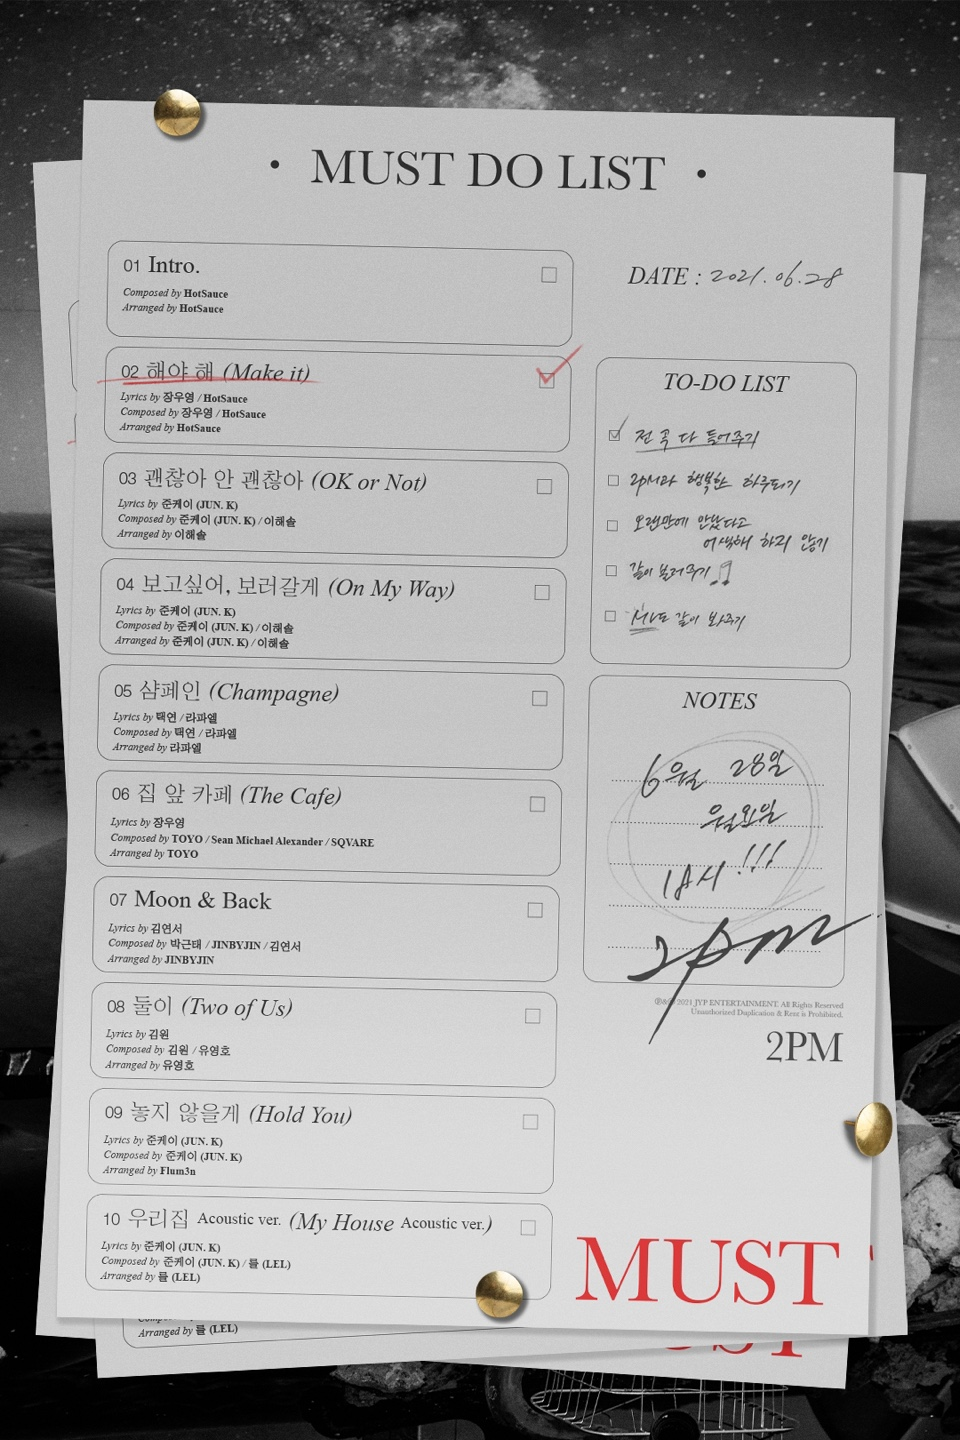 • MUST DO LIST •
01 Intro.
Composed by HotSauce
Arranged by HotSauce
02 해야 해 (Make it)
Lyrics by 장우영 / HotSauce
Composed by 장우영 / HotSauce
Arranged by HotSauce
03 괜찮아 안 괜찮아 (OK or Not)
Lyrics by 준케이 (JUN. K)
Composed by 준케이 (JUN. K) / 이해솔
Arranged by 이해솔
04 보고싶어, 보러갈게 (On My Way)
Lyrics by 준케이 (JUN. K)
Composed by 준케이 (JUN. K) / 이해솔
Arranged by 준케이 (JUN. K) / 이해솔
05 샴페인 (Champagne)
Lyrics by 택연 / 라파엘
Composed by 택연 / 라파엘
Arranged by 라파엘
06 집 앞 카페 (The Cafe)
Lyrics by 장우영
Composed by TOYO / Sean Michael Alexander / SQVARE
Arranged by TOYO
07 Moon & Back
Lyrics by 김연서
Composed by 박근태 / JINBYJIN / 김연서
Arranged by JINBYJIN
08 둘이 (Two of Us)
Lyrics by 김원
Composed by 김원 / 유영호
Arranged by 유영호
09 놓지 않을게 (Hold You)
Lyrics by 준케이 (JUN. K)
Composed by 준케이 (JUN. K)
Arranged by Flum3n
10 우리집 Acoustic ver. (My House Acoustic ver.)
Lyrics by 준케이 (JUN. K)
Composed by 준케이 (JUN. K) / 를 (LEL)
Arranged by 를 (LEL)
DATE : 2021.06.28
TO-DO LIST
전 곡 다 들어주기
2PM과 행복한 하루되기
오랜만에 만났다고
어색해 하지 않기
같이 불러주기
MV도 같이 봐주기
NOTES
6월 28일
월요일
6시 !!!
2pm
℗&© 2021 JYP ENTERTAINMENT. All Rights Reserved
Unauthorized Duplication & Rent is Prohibited.
2PM
MUST
Arranged by 를 (LEL)